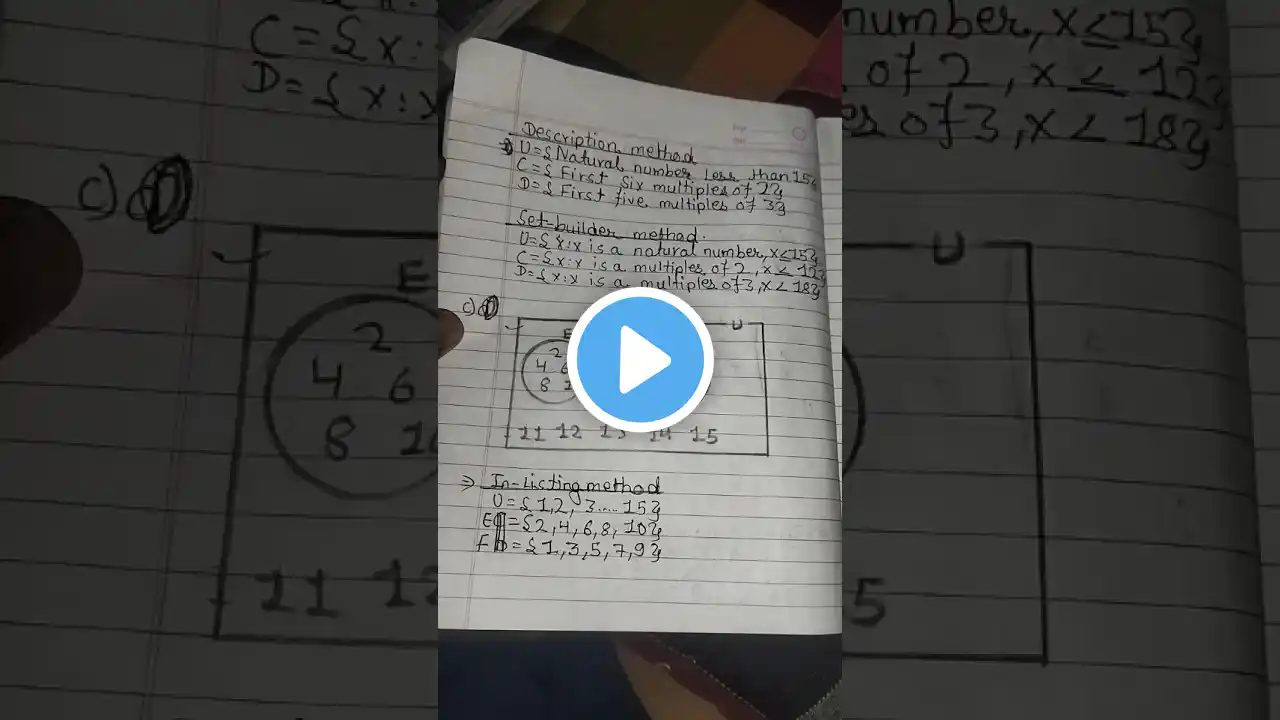 Description method
⇒ U = { Natural number less than 15}
C = { First six multiples of 2}
D = { First five multiples of 3}
Set-builder method.
U = { x : x is a natural number, x ≤ 15}
C = { x : x is a multiples of 2, x ≤ 12}
D = { x : x is a multiples of 3, x < 18}
c)
E U
2
4 6
8 10
11 12 13 14 15
⇒ In-Listing method
U = { 1, 2, 3.... 15}
E = { 2, 4, 6, 8, 10}
F = { 1, 3, 5, 7, 9}